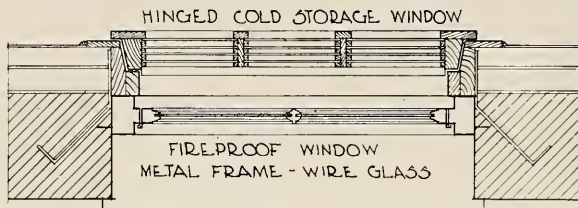 HINGED COLD STORAGE WINDOW
FIREPROOF WINDOW
METAL FRAME - WIRE GLASS